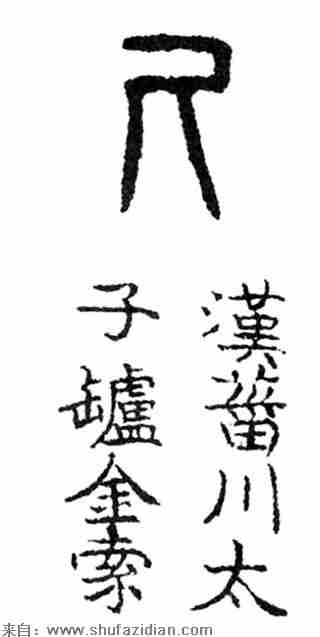 漢菑川太
子罏金索
来自：www.shufazidian.com